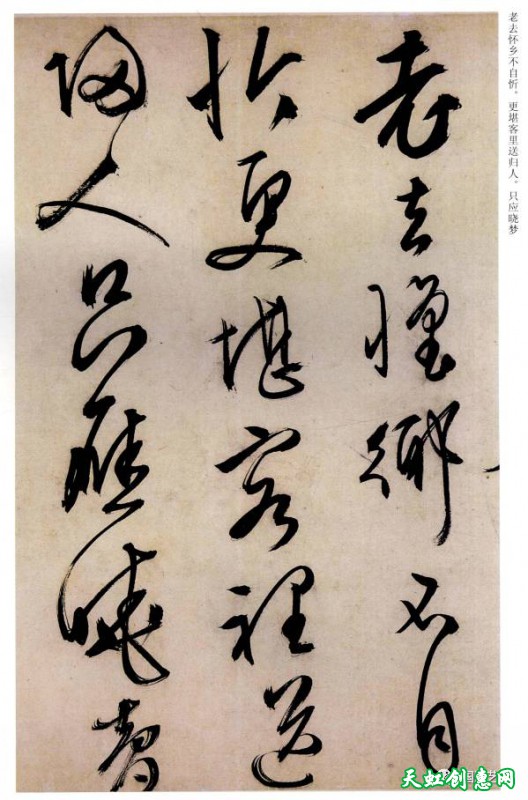 老去怀乡不自忻。更堪客里送归人。只应晓梦
老去懷鄉不自
忻更堪客裡送
歸人只應曉夢
天虹创惠网